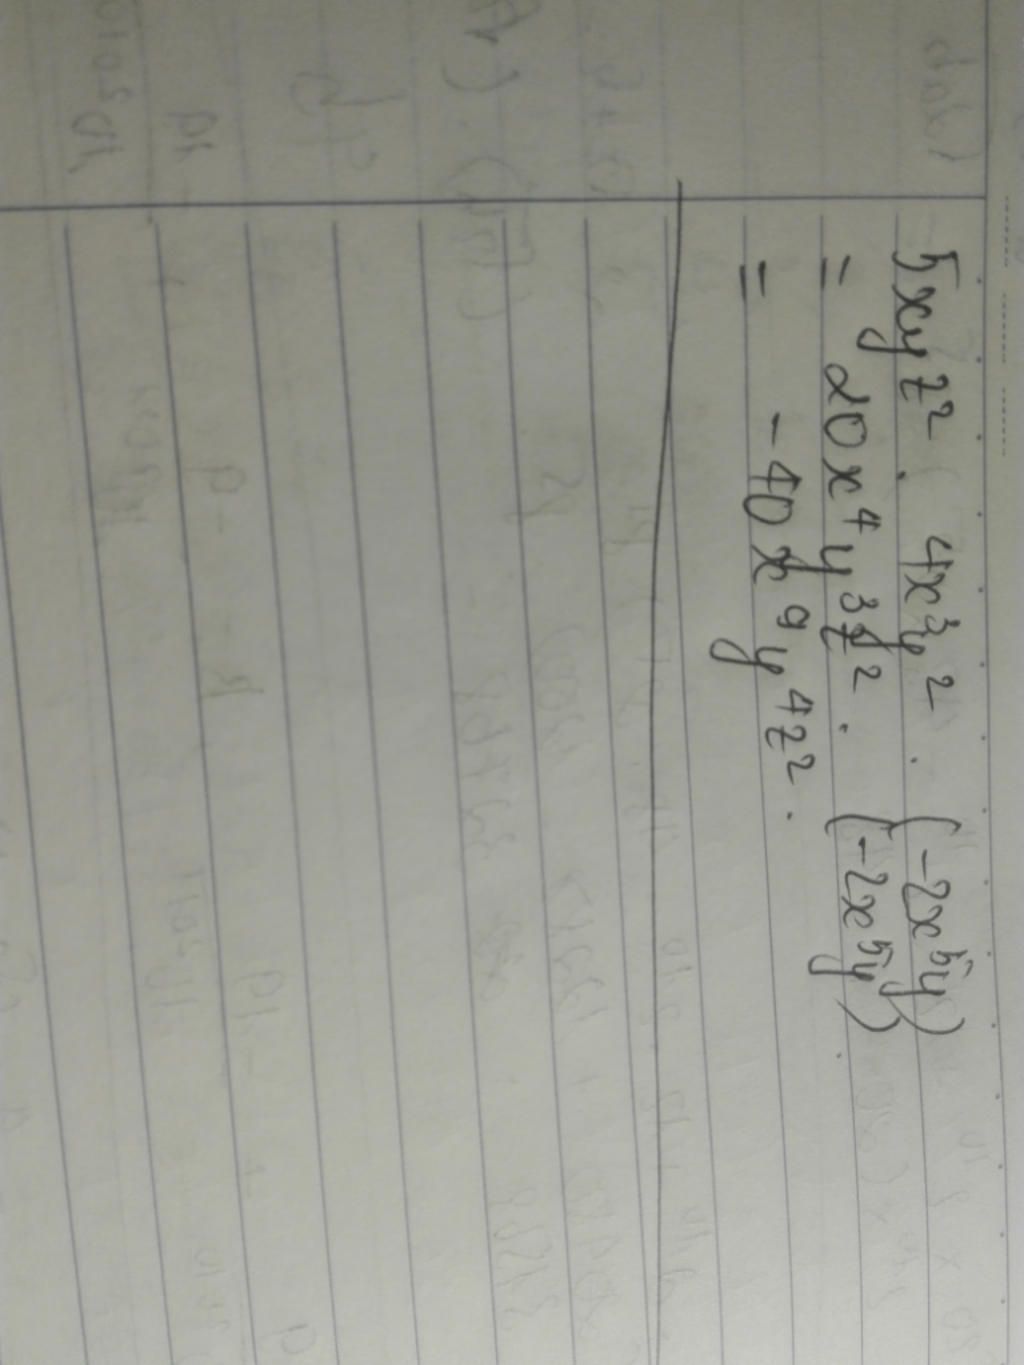 5xyz² . 4x³y² . (-2x⁵y)
= 20x⁴y³z² . (-2x⁵y) .
= -40x⁹y⁴z² .